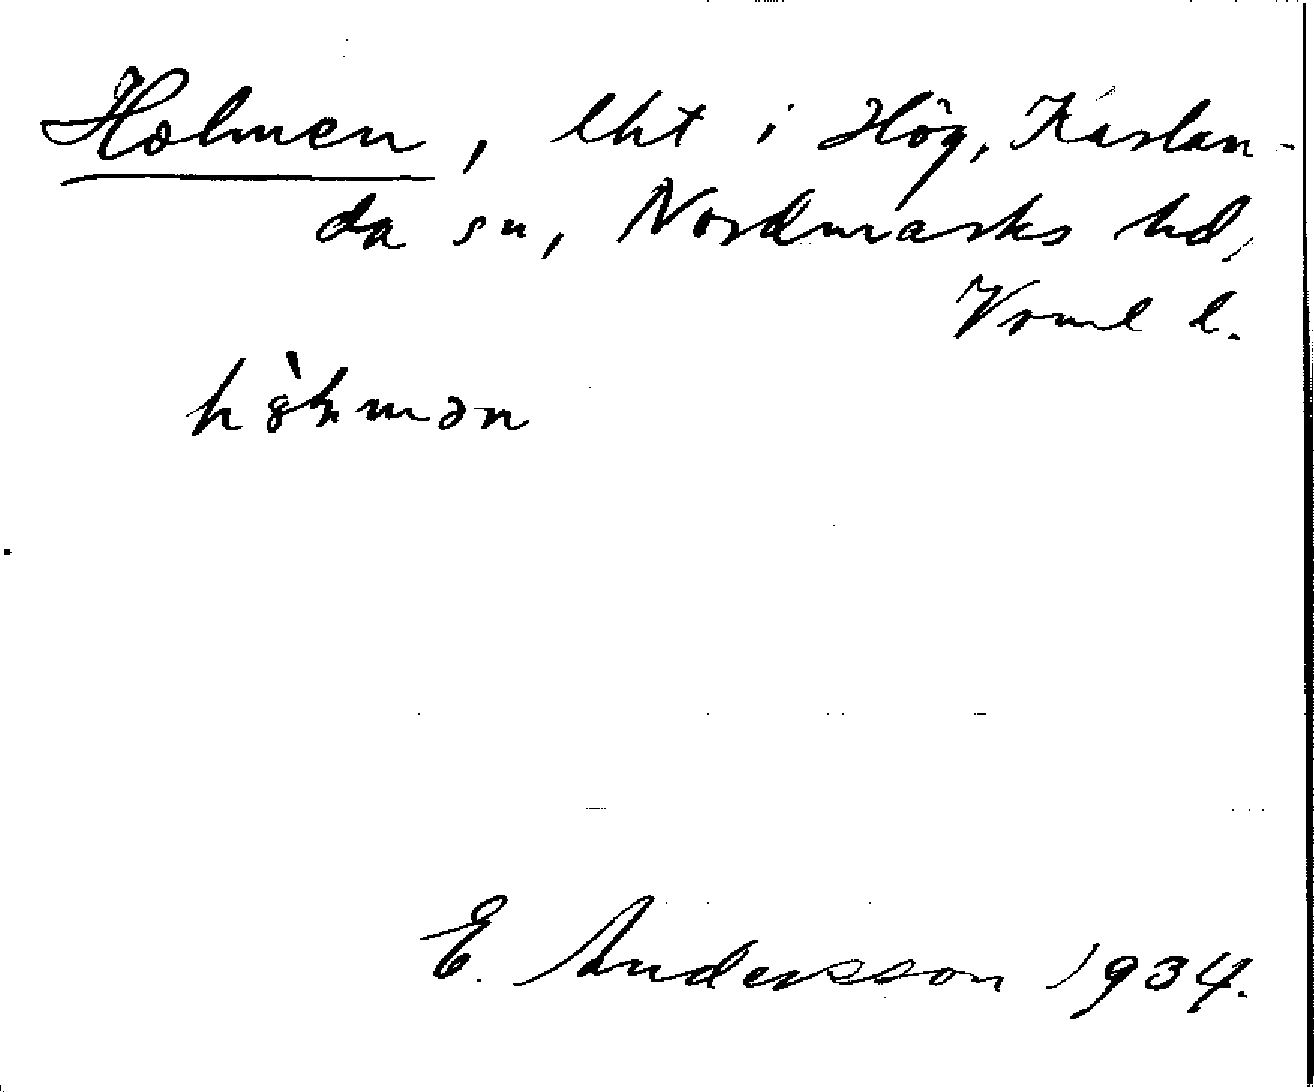 Holmen, lht i Hög, Karlan-
da sn, Nordmarks hd,
Vrml l.
E. Andersson 1934.